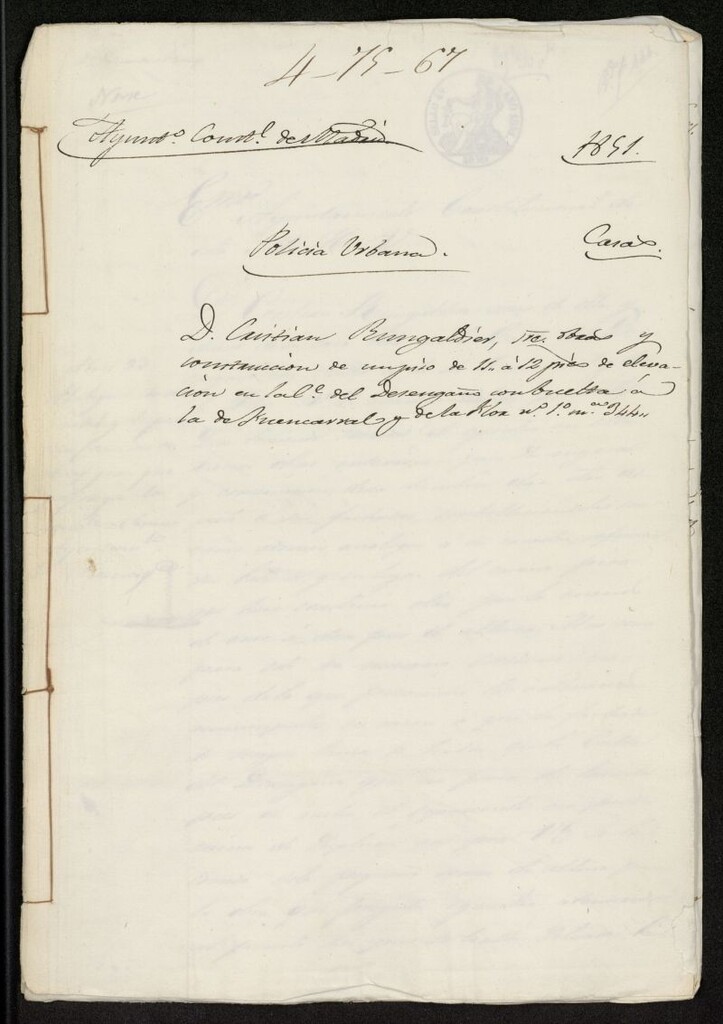 4-75-67
Ayunto. Constl. de Madrid.
1851.
Policia Urbana.
Casas.
D. Cristian Rungaldier, sre. obras y
construccion de un piso de 11 á 12 pies de eleva-
cion en la Ce. del Desengaño con buelta á
la de Fuencarral y de la Flor nº. 1º. ma. 344.,